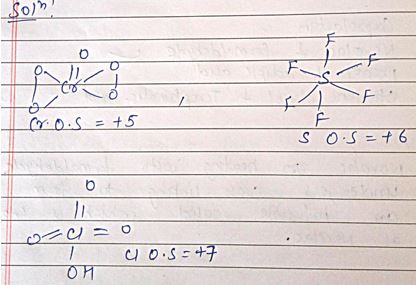 Soln:
O
O Cr O
O O
Cr. O.S = +5 ,
F
F S F
F F
F
S O.S = +6
O
||
O = Cl = O
|
OH
Cl O.S = +7